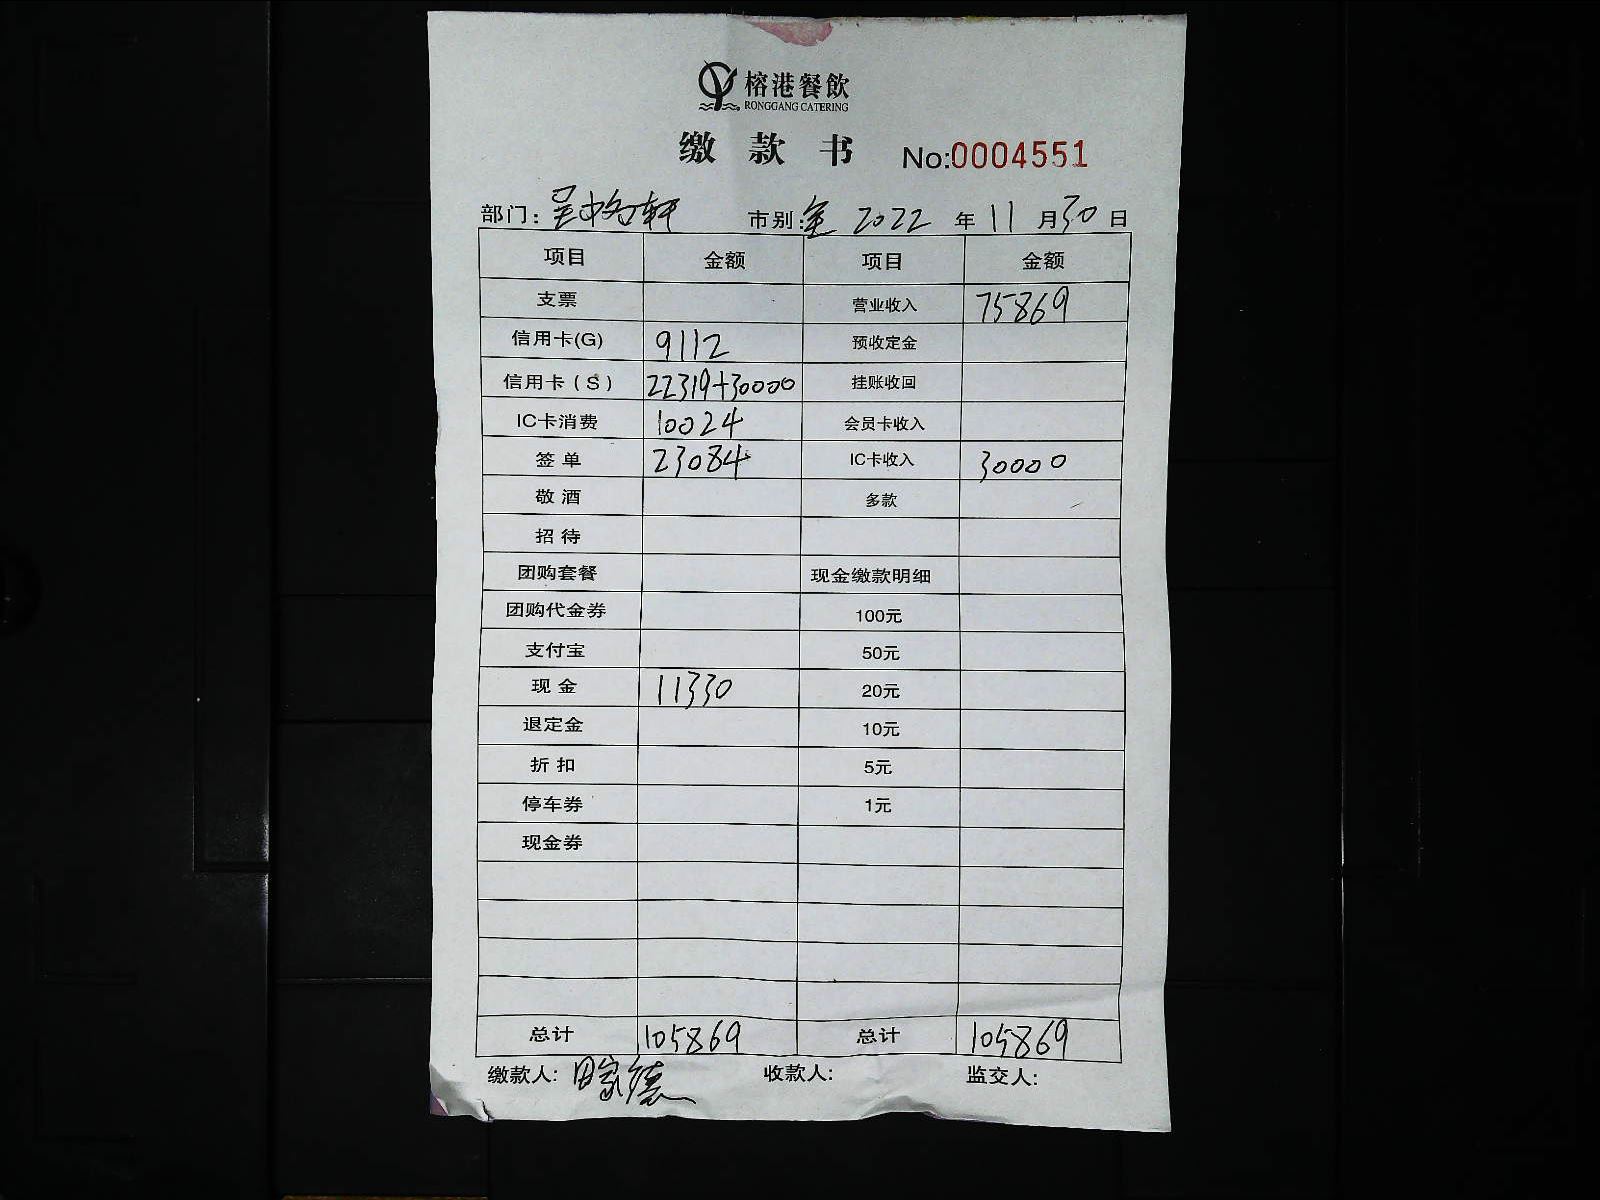 榕港餐飲
RONGGANG CATERING
缴款书 No:0004551
部门: 市别:全 2022 年 11 月 30 日
项目 金额 项目 金额
支票 营业收入 75869
信用卡(G) 9112 预收定金
信用卡(S) 22319+30000 挂账收回
IC卡消费 10024 会员卡收入
签单 23084 IC卡收入 30000
敬酒 多款
招待
团购套餐 现金缴款明细
团购代金券 100元
支付宝 50元
现金 11330 20元
退定金 10元
折扣 5元
停车券 1元
现金券
总计 105869 总计 105869
缴款人: 收款人: 监交人: